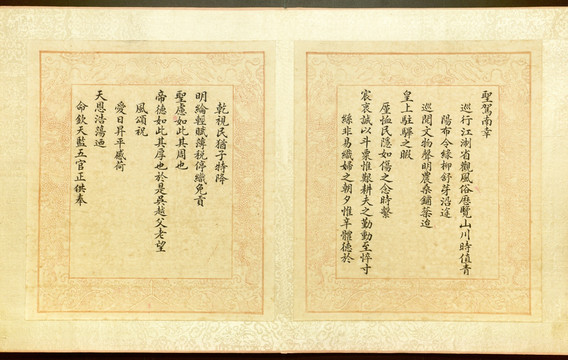 聖駕南幸
巡行江淛省觀風俗歷覽山川時值青
陽布令綠柳舒芽沿途
巡閱文物聲明農桑鋪菜迨
皇上駐驛之暇
屋恤民隱如傷之念時繫
宸衷誠以斗粟惟艱耕夫之勤動至悴寸
絲非易織婦之朝夕惟辛體德於
乾視民猶子特降
明綸輕賦薄稅停織免貢
聖慮如此其周也
帝德如此其厚也於是吳越父老望
風頌祝
愛日昇平感荷
天恩浩蕩迺
命欽天監五官正供奉